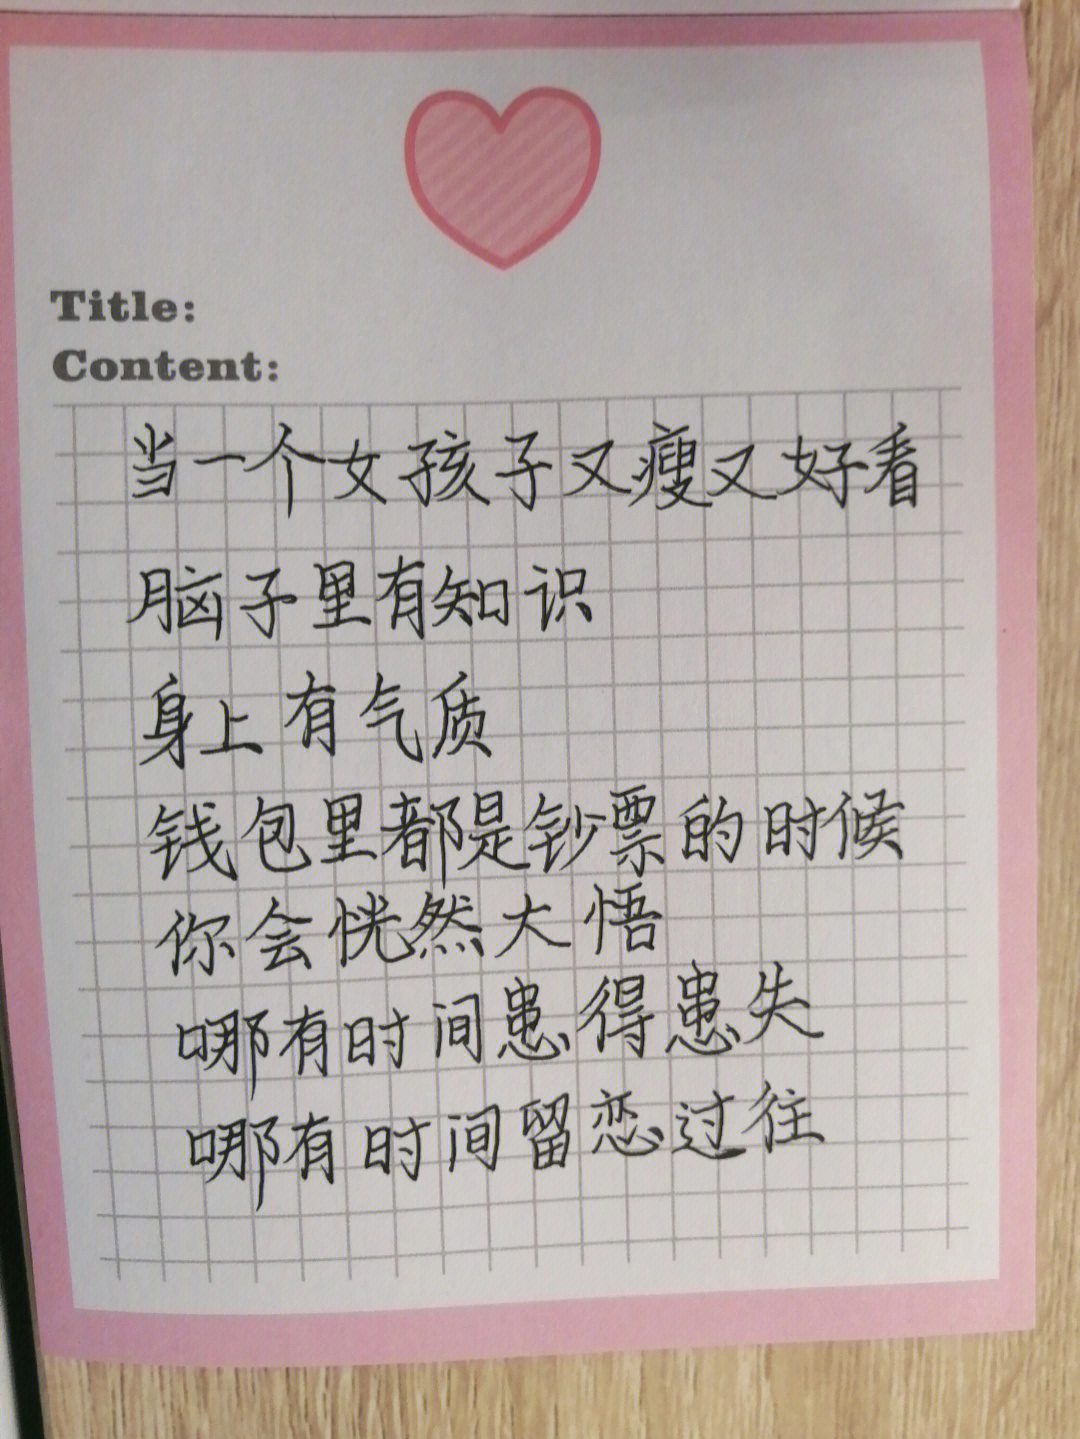 Title:
Content:
当一个女孩子又瘦又好看
脑子里有知识
身上有气质
钱包里都是钞票的时候
你会恍然大悟
哪有时间患得患失
哪有时间留恋过往